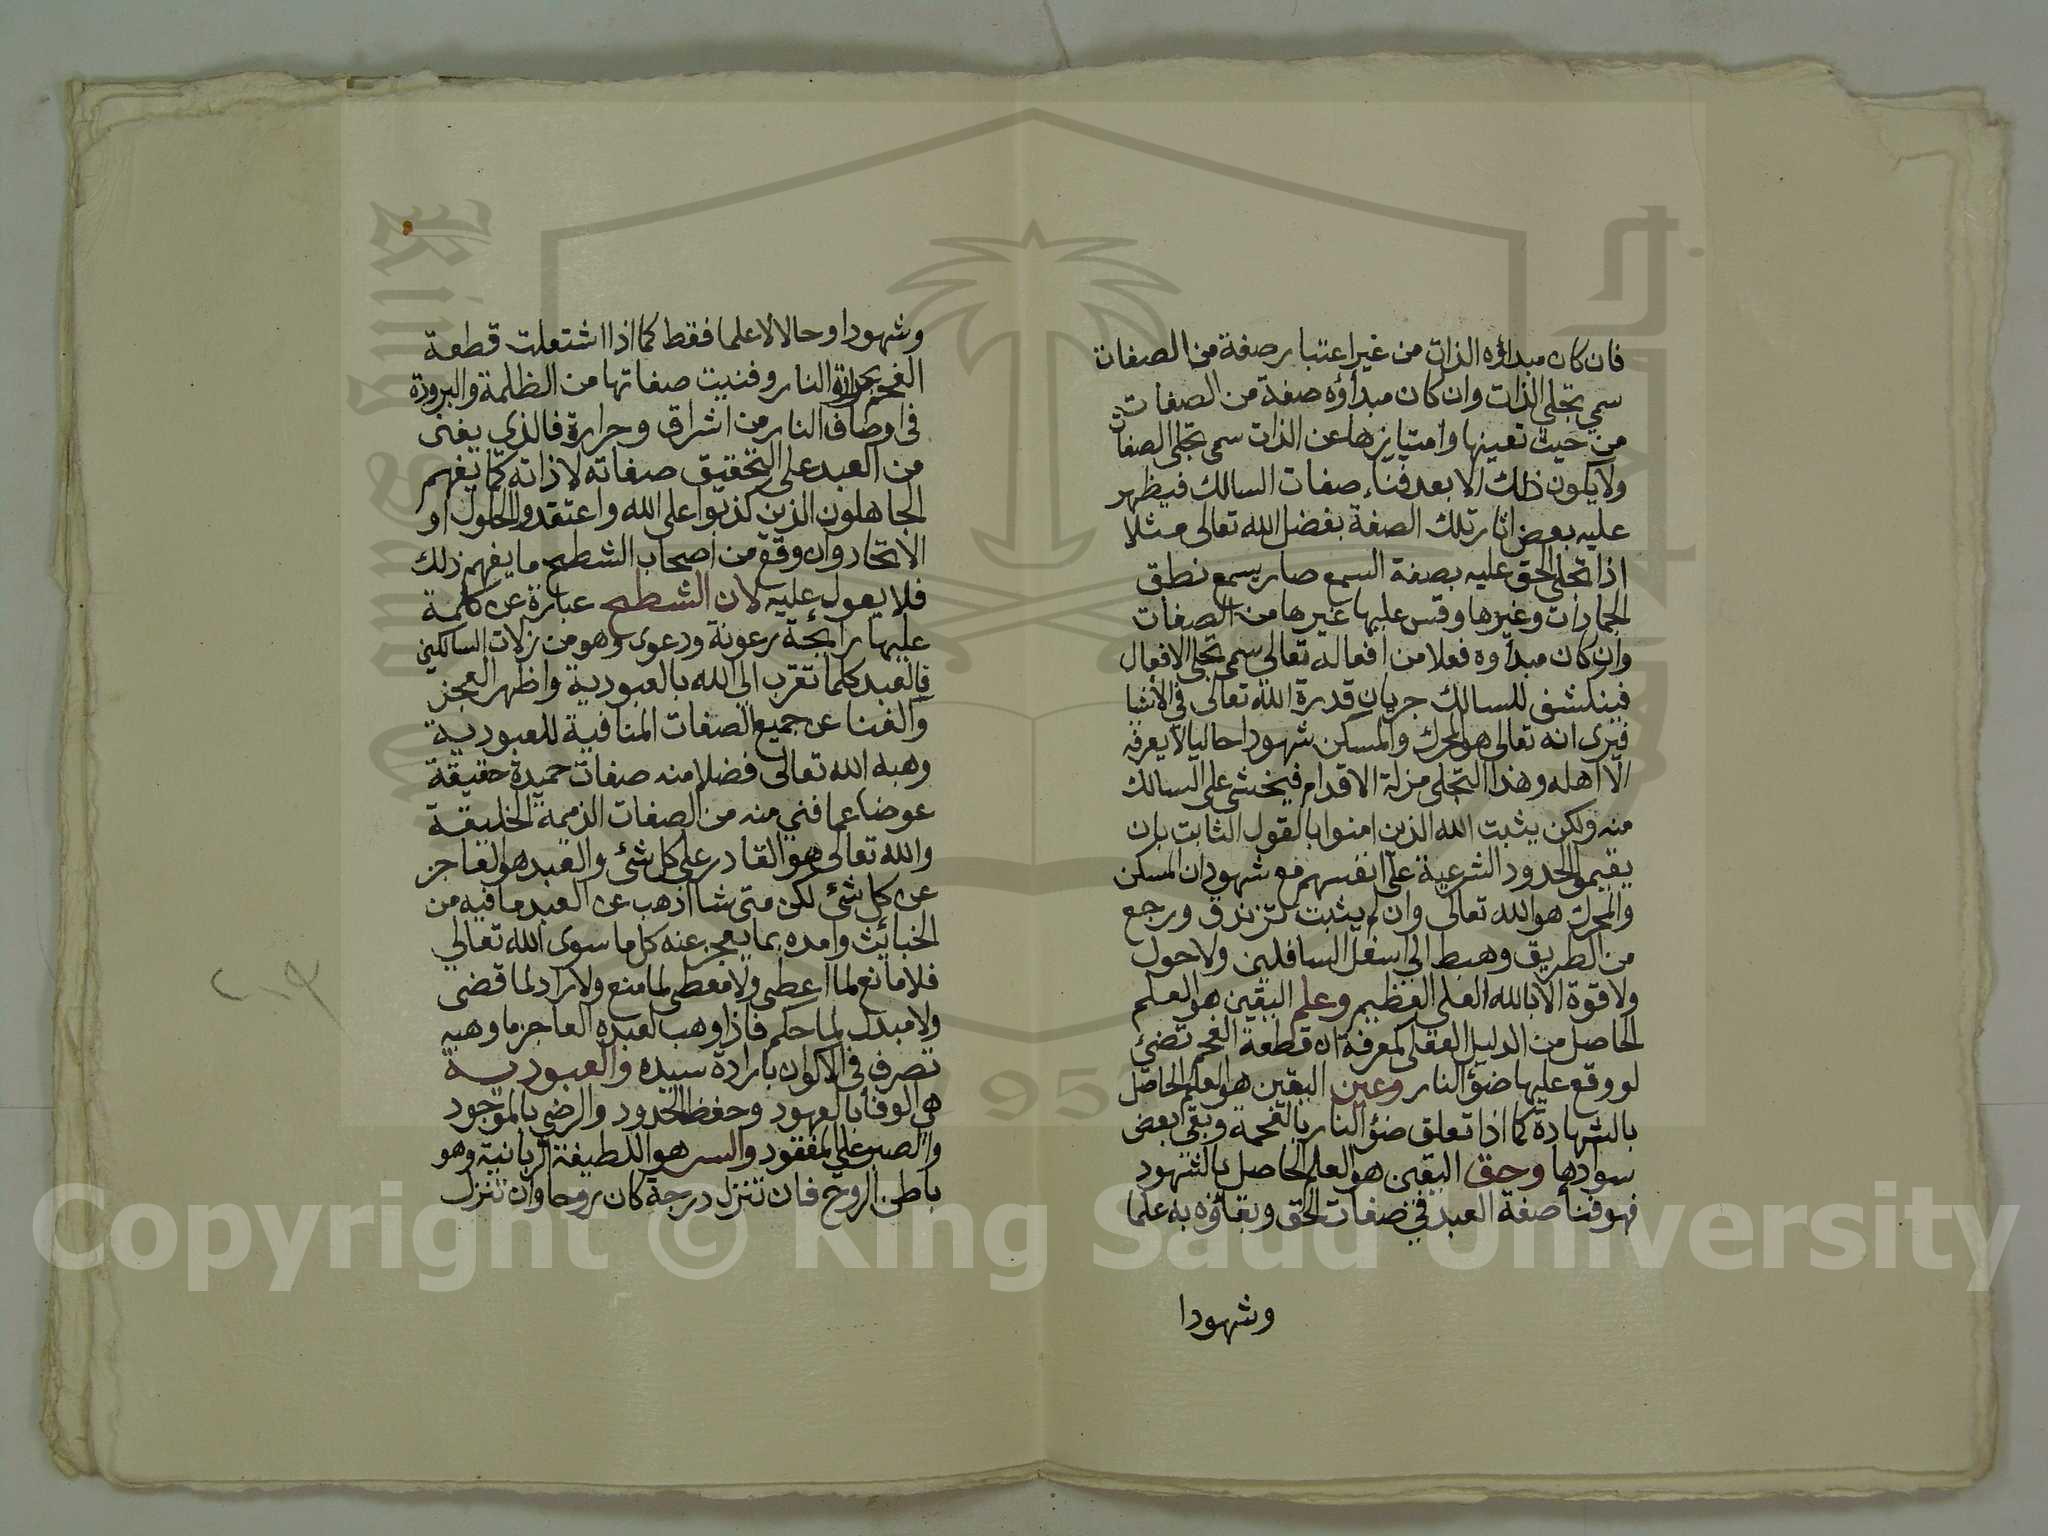 فان كان مبداؤه الذات من غير اعتبار صفة من الصفات
سمي تجلي الذات وان كان مبدأؤه صفة من الصفات
من حيث تعينها وامتيازها عن الذات سمى تجلى الصفات
ولا يكون ذلك الا بعد فناء صفات السالك فيظهر
عليه بعض اثار تلك الصفة بفضل الله تعالى مثلا
اذا تجلى الحق عليه بصفة السمع صار يسمع نطق
الجمادات وغيرها وقس عليها غيرها من الصفات
وان كان مبدأوه فعلا من افعاله تعالى سمى تجلى الافعال
فينكشف للسالك جريان قدرة الله تعالى في الأشيا
فيرى انه تعالى هو المحرك والمسكن شهودا حاليا لا يعرفه
الا اهله وهذا التجلى مزلة الاقدام فيخشى على السالك
منه ولكن يثبت الله الذين امنوا بالقول الثابت بان
يقيموا الحدود الشرعية على انفسهم مع شهود ان المسكن
والمحرك هو الله تعالى وان لم يثبت تزندق ورجع
من الطريق وهبط الى اسفل السافلين ولا حول
ولا قوة الا بالله العلى العظيم وعلم اليقين هو العلم
الحاصل من الدليل العقلى كمعرفة ان قطعة الفحم تضئ
لو وقع عليها ضؤ النار وعين اليقين هو العلم الحاصل
بالشهادة كما اذا تعلق ضؤ النار بالفحمة وبقى بعض
سوادها وحق اليقين هو العلم الحاصل بالشهود
فهو فنأ صفة العبد في صفات الحق وبقاؤه به علما
وشهودا
وشهودا وحالا لا علما فقط كما اذا اشتعلت قطعة
الفحم بحرارة النار وفنيت صفاتها من الظلمة والبرودة
في اوصاف النار من اشراق وحرارة فالذي يفنى
من العبد على التحقيق صفاته لا ذاته كما يفهم
الجاهلون الذين كذبوا على الله واعتقدوا الحلول او
الاتحاد وان وقع من اصحاب الشطح ما يفهم ذلك
فلا يعول عليه لان الشطح عبارة عن كلمة
عليها رائحة رعونة ودعوى وهو من زلات السالكين
فالعبد كلما تقرب الى الله بالعبودية واظهر العجز
والفنا عن جميع الصفات المنافية للعبودية
وهبه الله تعالى فضلا منه صفات حميدة حقيقة
عوضا عما فني منه من الصفات الذميمة الخليقة
والله تعالى هو القادر على كل شئ والعبد هو العاجز
عن كل شئ لكن متى شا اذهب عن العبد ما فيه من
الخبائث وامده بما يعجز عنه كل ما سوى الله تعالي
فلا مانع لما اعطى ولا معطى لما منع ولا راد لما قضى
ولا مبدل لما حكم فاذا وهب لعبده العاجز ما وهبه
تصرف في الاكوان بارادة سيده والعبودية
هي الوفأ بالعهود وحفظ الحدود والرضي بالموجود
والصبر على المفقود والسر هو اللطيفة الربانية وهو
باطن الروح فان تنزل درجة كان روحا وان تنزل
Copyright © King Saud University